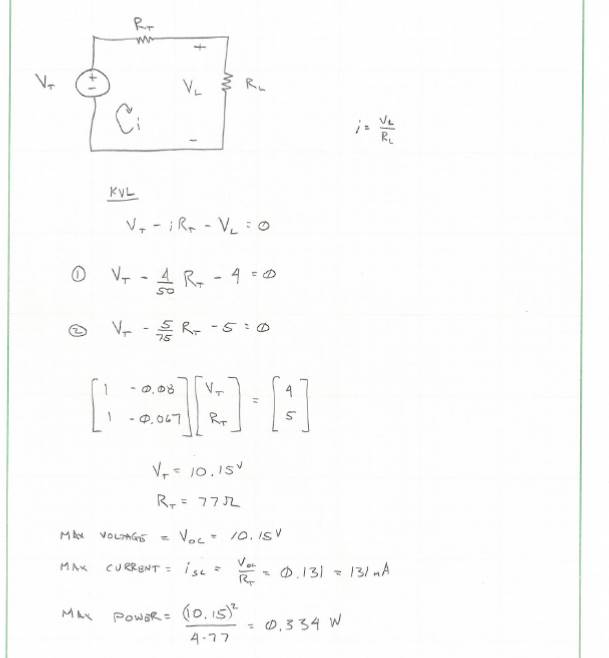 R_T
+
V_T
+
-
V_L
R_L
i
-
i = V_L/R_L
KVL
V_T - iR_T - V_L = 0
① V_T - 4/50 R_T - 4 = 0
② V_T - 5/75 R_T - 5 = 0
[1 -0.08] [V_T] = [4]
[1 -0.067] [R_T] [5]
V_T = 10.15V
R_T = 77Ω
MAX VOLTAGE = V_OC = 10.15V
MAX CURRENT = i_SC = V_OC/R_T = 0.131 = 131 mA
MAX POWER = (10.15)²/4·77 = 0.334 W